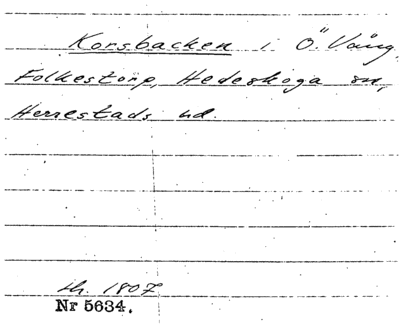 Korsbacken i Ö. Vång,
Folkestorp, Hedeskoga sn,
Herrestads hd.
sh. 1807
Nr 5634.